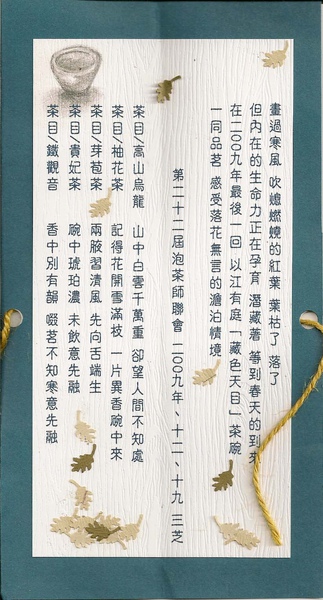 畫過寒風 吹熄燃燒的紅葉 葉枯了 落了
但內在的生命力正在孕育 潛藏著 等到春天的到來
在二00九年最後一回 以江有庭「藏色天目」茶碗
一同品茗 感受落花無言的澹泊情境
第二十二屆泡茶師聯會 二00九年、十二、十九 三芝
茶目/高山烏龍 山中白雲千萬重 卻望人間不知處
茶目/柚花茶 記得花開雪滿枝 一片異香碗中來
茶目/芽苞茶 兩腋習清風 先向舌端生
茶目/貴妃茶 碗中琥珀濃 未飲意先融
茶目/鐵觀音 香中別有韻 啜茗不知寒意先融